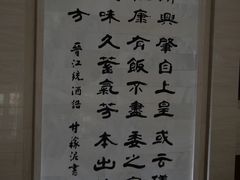 興肇自上皇或云
康有飯不盡委之
味久蓄氣芳本出
方
晉江統酒誥 竹
書